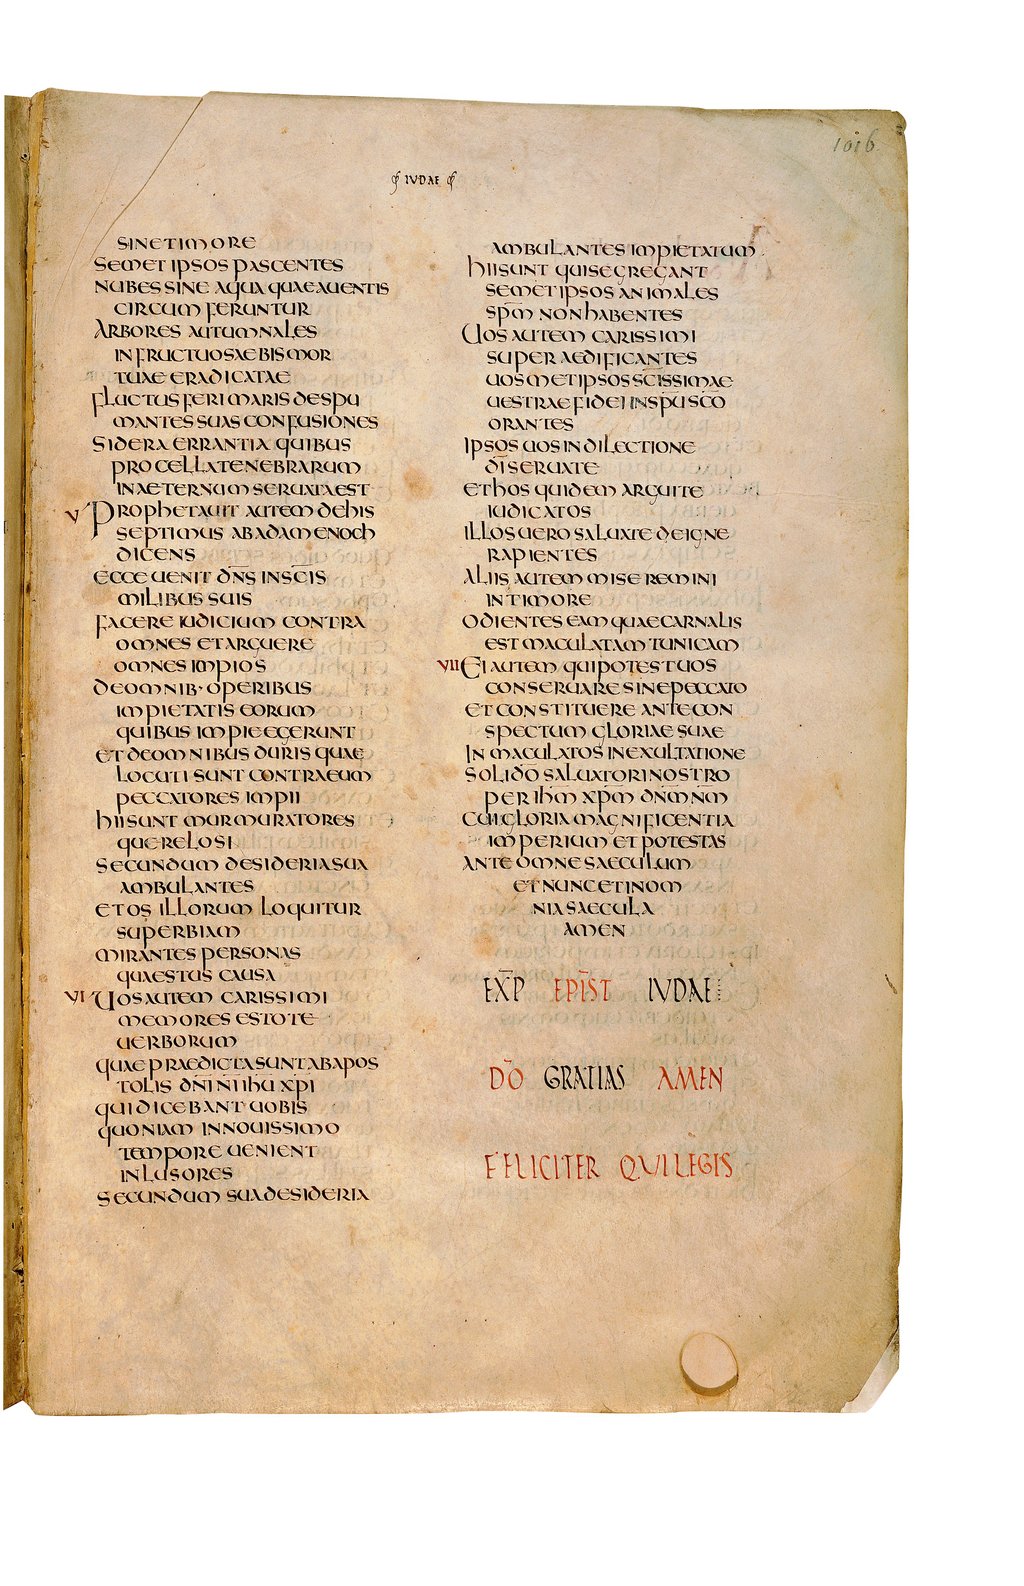 1016
IUDAE
SINE TIMORE
SEMET IPSOS PASCENTES
NUBES SINE AQUA QUAE AUENTIS
CIRCUM FERUNTUR
ARBORES AUTUMNALES
INFRUCTUOSAE BIS MOR
TUAE ERADICATAE
FLUCTUS FERI MARIS DESPU
MANTES SUAS CONFUSIONES
SIDERA ERRANTIA QUIBUS
PROCELLA TENEBRARUM
IN AETERNUM SERUATA EST
V PROPHETAUIT AUTEM DE HIS
SEPTIMUS AB ADAM ENOCH
DICENS
ECCE UENIT DN̅S IN SC̅IS
MILIBUS SUIS
FACERE IUDICIUM CONTRA
OMNES ET ARGUERE
OMNES IMPIOS
DE OMNIB· OPERIBUS
IMPIETATIS EORUM
QUIBUS IMPIE EGERUNT
ET DE OMNIBUS DURIS QUAE
LOCUTI SUNT CONTRA EUM
PECCATORES IMPII
HII SUNT MURMURATORES
QUERELOSI
SECUNDUM DESIDERIA SUA
AMBULANTES
ET OS ILLORUM LOQUITUR
SUPERBIAM
MIRANTES PERSONAS
QUAESTUS CAUSA
VI UOS AUTEM CARISSIMI
MEMORES ESTOTE
UERBORUM
QUAE PRAEDICTA SUNT AB APOS
TOLIS DN̅I N̅I IH̅U XP̅I
QUI DICEBANT UOBIS
QUONIAM IN NOUISSIMO
TEMPORE UENIENT
INLUSORES
SECUNDUM SUA DESIDERIA
AMBULANTES IMPIETATUM
HII SUNT QUI SEGREGANT
SEMET IPSOS ANIMALES
SP̅M NON HABENTES
UOS AUTEM CARISSIMI
SUPERAEDIFICANTES
UOSMET IPSOS SC̅ISSIMAE
UESTRAE FIDEI IN SP̅U SC̅O
ORANTES
IPSOS UOS IN DILECTIONE
DI̅ SERUATE
ET HOS QUIDEM ARGUITE
IUDICATOS
ILLOS UERO SALUATE DE IGNE
RAPIENTES
ALIIS AUTEM MISEREMINI
IN TIMORE
ODIENTES EAM QUAE CARNALIS
EST MACULATAM TUNICAM
VII EI AUTEM QUI POTEST UOS
CONSERUARE SINE PECCATO
ET CONSTITUERE ANTE CON
SPECTUM GLORIAE SUAE
INMACULATOS IN EXULTATIONE
SOLI DO̅ SALUATORI NOSTRO
PER IH̅M XP̅M DN̅M N̅M
CUI GLORIA MAGNIFICENTIA
IMPERIUM ET POTESTAS
ANTE OMNE SAECULUM
ET NUNC ET IN OM
NIA SAECULA
AMEN
EXP̅ EPIST̅ IUDAE
DO̅ GRATIAS AMEN
FELICITER QUI LEGIS